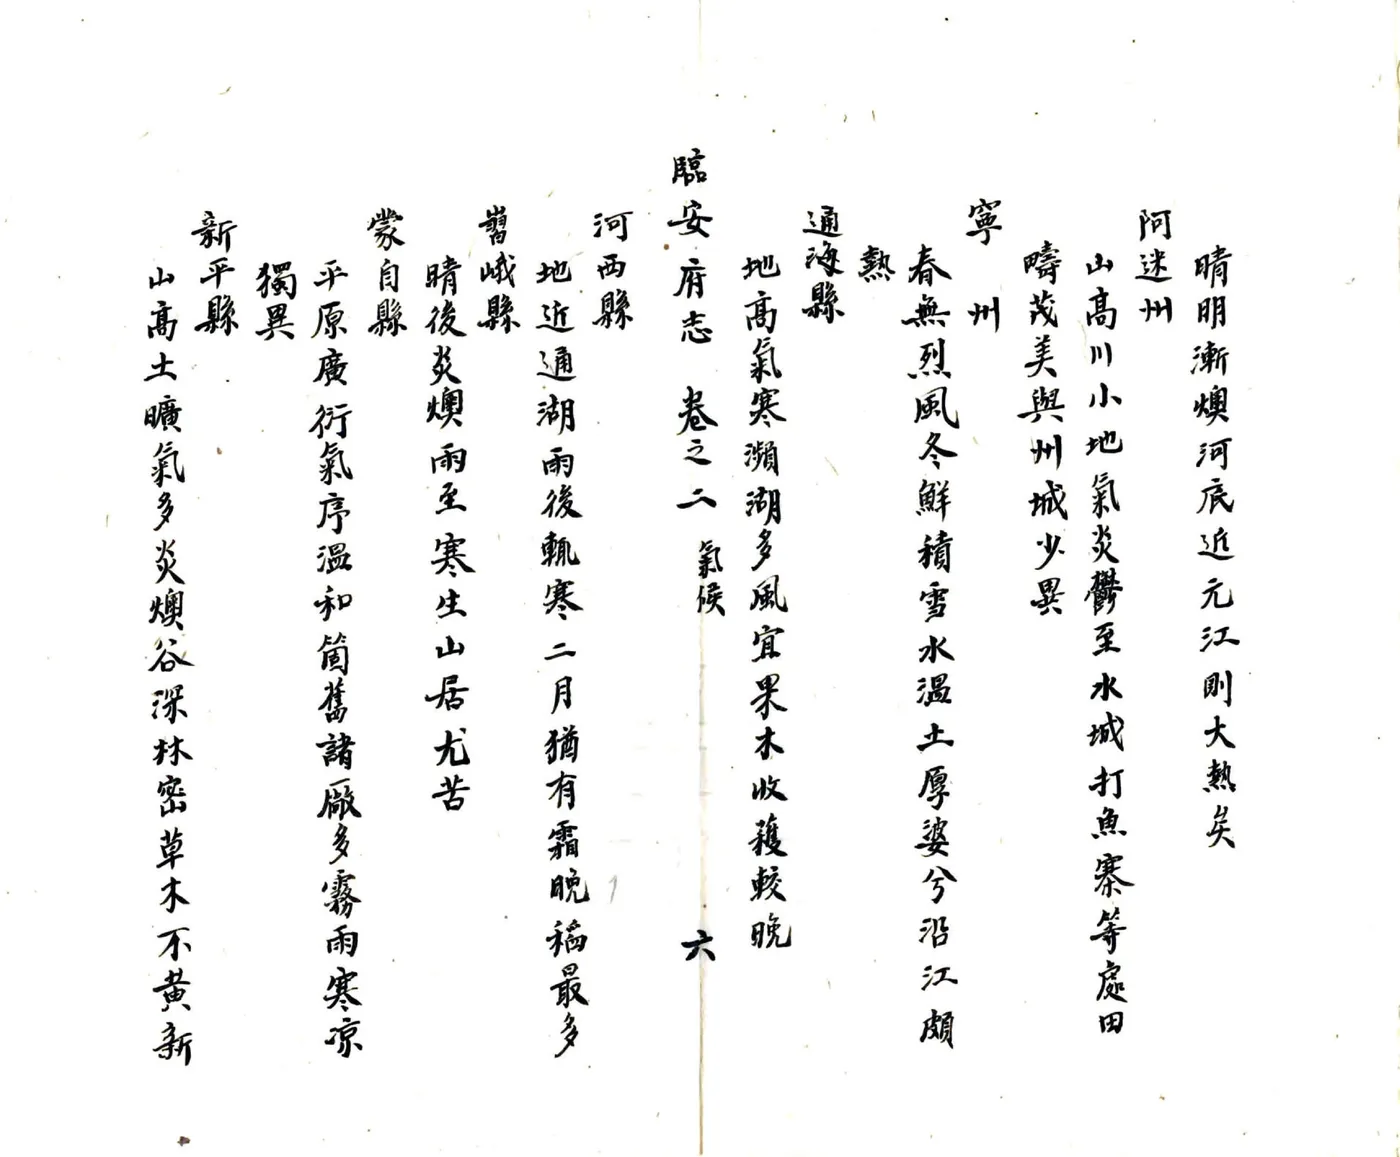 晴明漸燠河底近元江則大熱矣
阿迷州
山高川小地氣炎鬱至水城打魚寨等處田
疇茂美與州城少異
寧州
春無烈風冬鮮積雪水溫土厚婆兮沿江頗
熱
通海縣
地高氣寒瀕湖多風宜果木收穫較晚
臨安府志 卷之二 氣候 六
河西縣
地近通湖雨後輒寒二月猶有霜晚稻最多
嶍峨縣
晴後炎燠雨至寒生山居尤苦
蒙自縣
平原廣衍氣序溫和箇舊諸廠多霧雨寒凉
獨異
新平縣
山高土曠氣多炎燠谷深林密草木不黄新